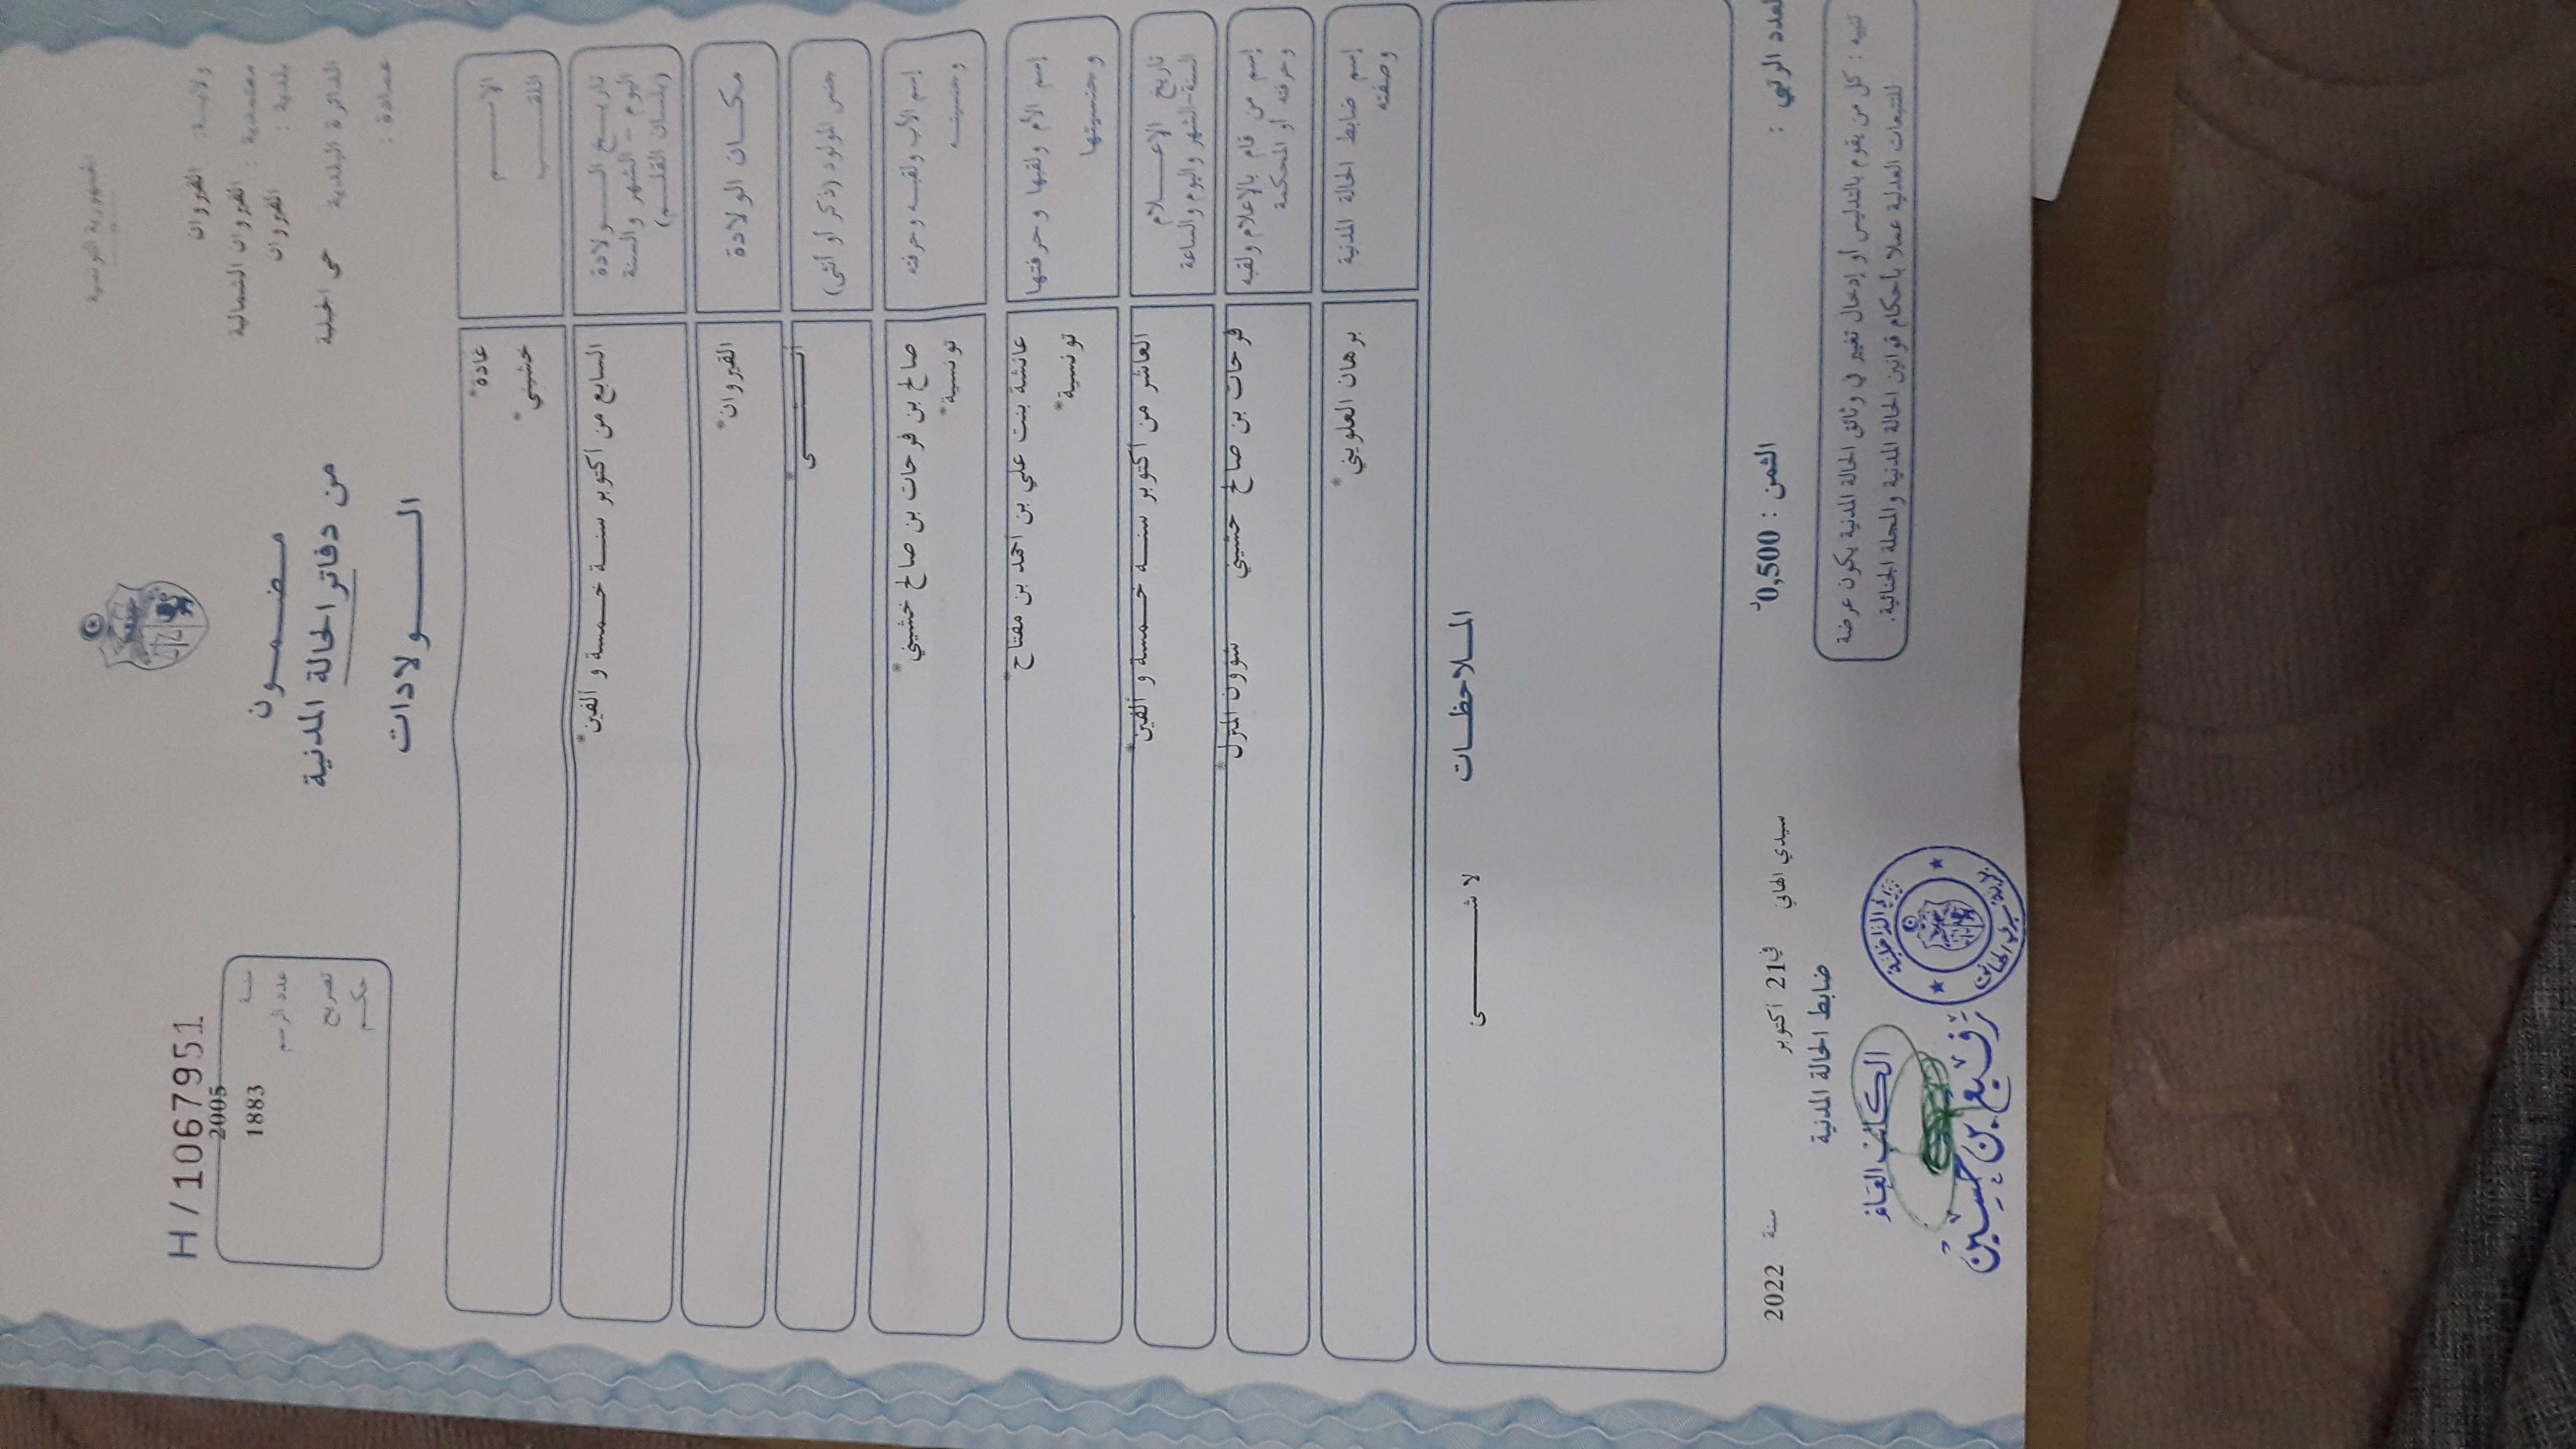 الجمهورية التونسية
ولاية: القيروان
معتمدية : القيروان الشمالية
بلدية : القيروان
الدائرة البلدية حي الحجلة
عمادة :
مضمون
من دفاتر الحالة المدنية
الولادات
H / 10679951
سنة 2005
عدد الرسم 1883
تصريح
حكم
الاسم غادة*
اللقب خشيني*
تاريخ الولادة
اليوم - الشهر والسنة
(بلسان القلم)
السابع من أكتوبر سنة خمسة و ألفين*
مكان الولادة القيروان*
جنس المولود (ذكر أو أنثى) أنثى*
إسم الأب ولقبه وحرفته صالح بن فرحات بن صالح خشيني*
وجنسيته تونسية*
إسم الأم ولقبها وحرفتها عائشة بنت علي بن احمد بن مفتاح*
وجنسيتها تونسية*
تاريخ الإعلام
السنة-الشهر واليوم والساعة
العاشر من أكتوبر سنة خمسة و ألفين*
إسم من قام بالإعلام ولقبه فرحات بن صالح خشيني شؤون المنزل*
وحرفته أو المحكمة
إسم ضابط الحالة المدنية برهان العلويني*
وصفته
الملاحظات
لا شئ
العدد الرتبي :
الثمن : 0,500د
سيدي الهاني في 21 أكتوبر سنة 2022
ضابط الحالة المدنية
تنبيه : كل من يقوم بالتدليس أو إدخال تغيير في وثائق الحالة المدنية يكون عرضة
للتتبعات العدلية عملا بأحكام قوانين الحالة المدنية والمجلة الجنائية.
الكاتب العام
بن حسين
وزارة الداخلية